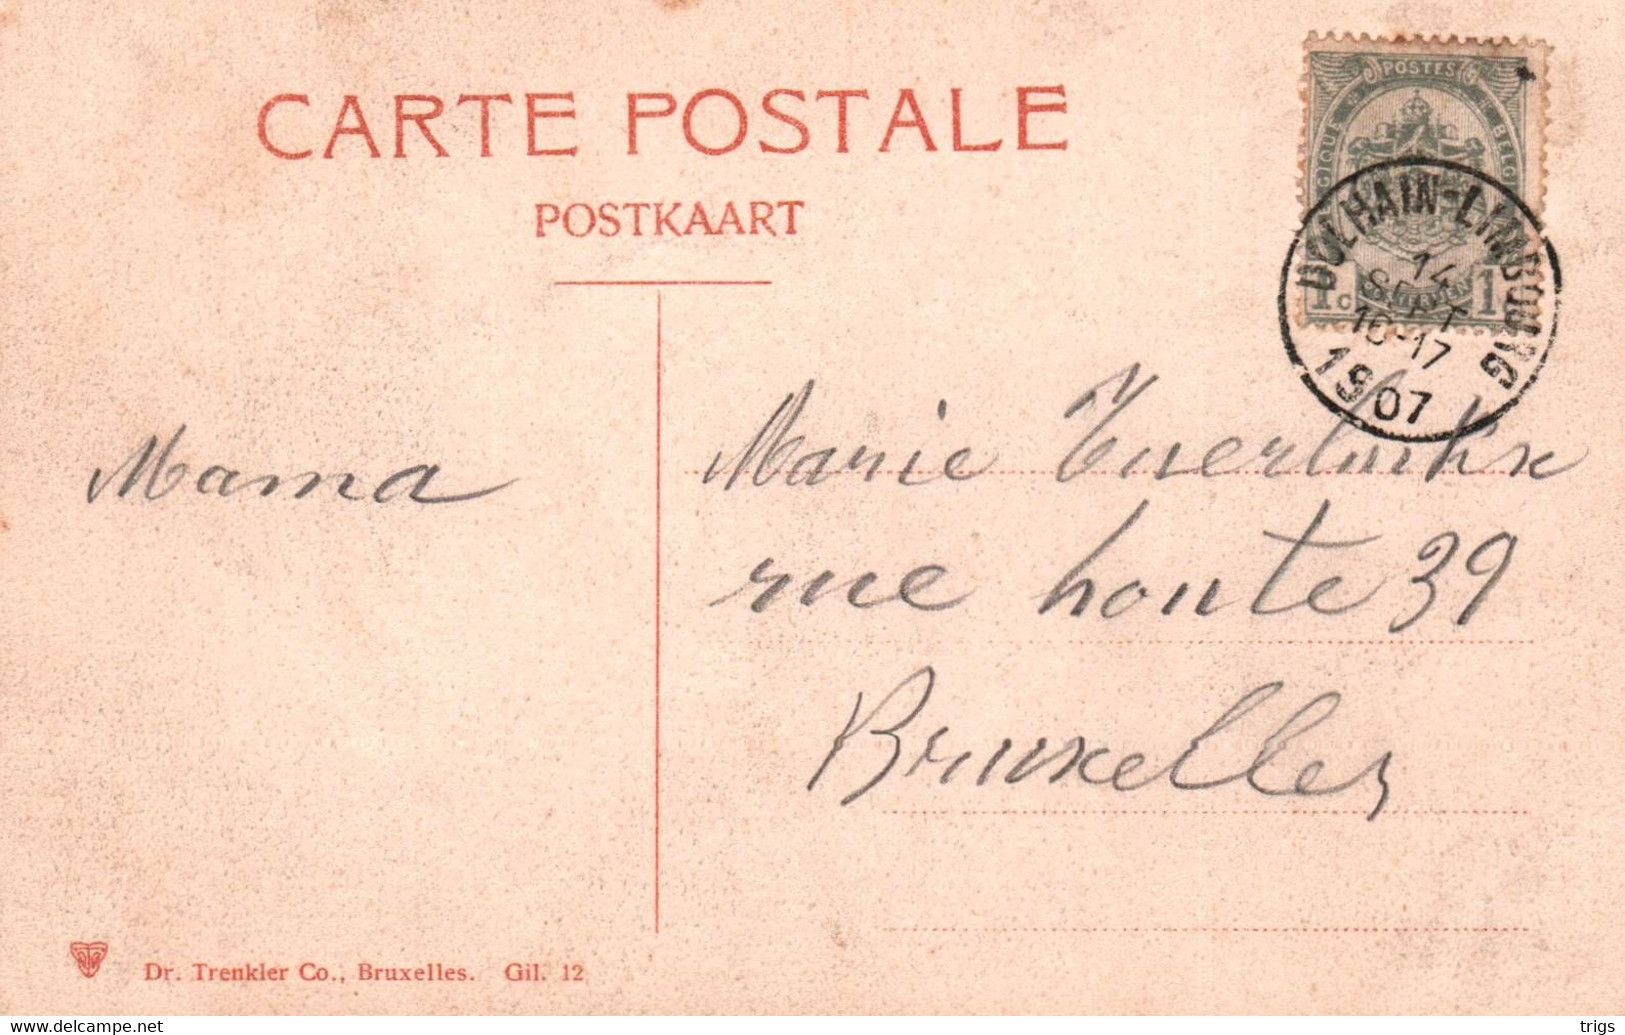 CARTE POSTALE
POSTKAART
POSTES
BELGIQUE
1c 1c
DOLHAIN-LIMBOURG
14
SEPT
16-17
1907
Mama
Marie
rue houte 39
Bruxelles
Dr. Trenkler Co., Bruxelles. Gil. 12
www.delcampe.net
trigs